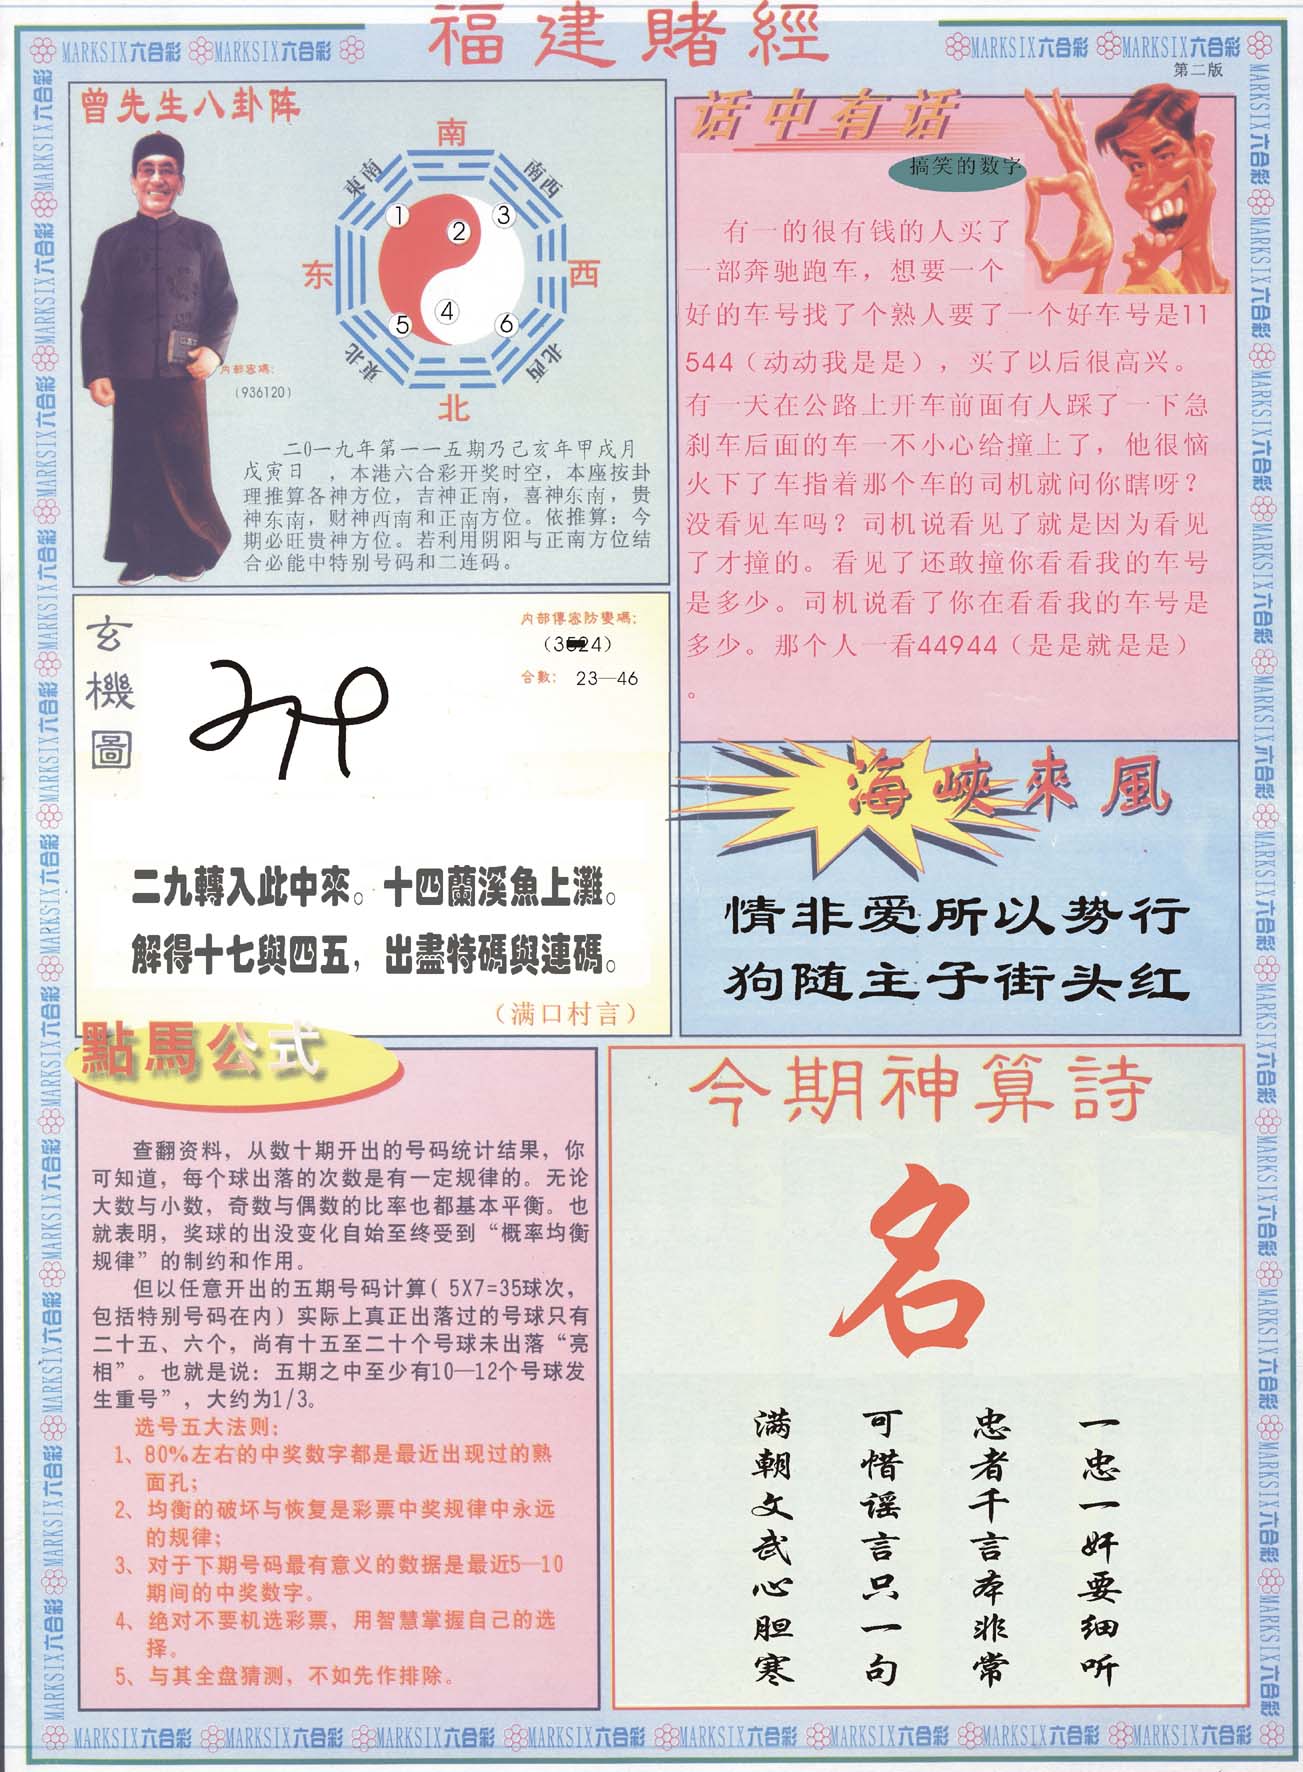 福建賭經
MARKSIX六合彩 MARKSIX六合彩
MARKSIX六合彩 MARKSIX六合彩
第二版
曾先生八卦阵
南
東南
南西
东
西
東北
北西
北
1
2
3
4
5
6
内部密碼:
(936120)
二0一九年第一一五期乃己亥年甲戌月
戊寅日 ,本港六合彩开奖时空,本座按卦
理推算各神方位,吉神正南,喜神东南,贵
神东南,财神西南和正南方位。依推算:今
期必旺贵神方位。若利用阴阳与正南方位结
合必能中特别号码和二连码。
话中有话
搞笑的数字
有一的很有钱的人买了
一部奔驰跑车,想要一个
好的车号找了个熟人要了一个好车号是11
544(动动我是是),买了以后很高兴。
有一天在公路上开车前面有人踩了一下急
刹车后面的车一不小心给撞上了,他很恼
火下了车指着那个车的司机就问你瞎呀?
没看见车吗?司机说看见了就是因为看见
了才撞的。看见了还敢撞你看看我的车号
是多少。司机说看了你在看看我的车号是
多少。那个人一看44944(是是就是是)
。
玄機圖
内部傳密防變碼:
(3524)
合數: 23—46
二九轉入此中來。十四蘭溪魚上灘。
解得十七與四五,出盡特碼與連碼。
(满口村言)
海峽來風
情非爱所以势行
狗随主子街头红
點馬公式
查翻资料,从数十期开出的号码统计结果,你
可知道,每个球出落的次数是有一定规律的。无论
大数与小数,奇数与偶数的比率也都基本平衡。也
就表明,奖球的出没变化自始至终受到“概率均衡
规律”的制约和作用。
但以任意开出的五期号码计算( 5X7=35球次,
包括特别号码在内)实际上真正出落过的号球只有
二十五、六个,尚有十五至二十个号球未出落“亮
相”。也就是说:五期之中至少有10—12个号球发
生重号”,大约为1/3。
选号五大法则:
1、80%左右的中奖数字都是最近出现过的熟
面孔;
2、均衡的破坏与恢复是彩票中奖规律中永远
的规律;
3、对于下期号码最有意义的数据是最近5—10
期间的中奖数字。
4、绝对不要机选彩票,用智慧掌握自己的选
择。
5、与其全盘猜测,不如先作排除。
今期神算詩
名
一忠一奸要细听
忠者千言本非常
可惜谣言只一句
满朝文武心胆寒
MARKSIX六合彩 MARKSIX六合彩 MARKSIX六合彩 MARKSIX六合彩 MARKSIX六合彩 MARKSIX六合彩 MARKSIX六合彩 MARKSIX六合彩